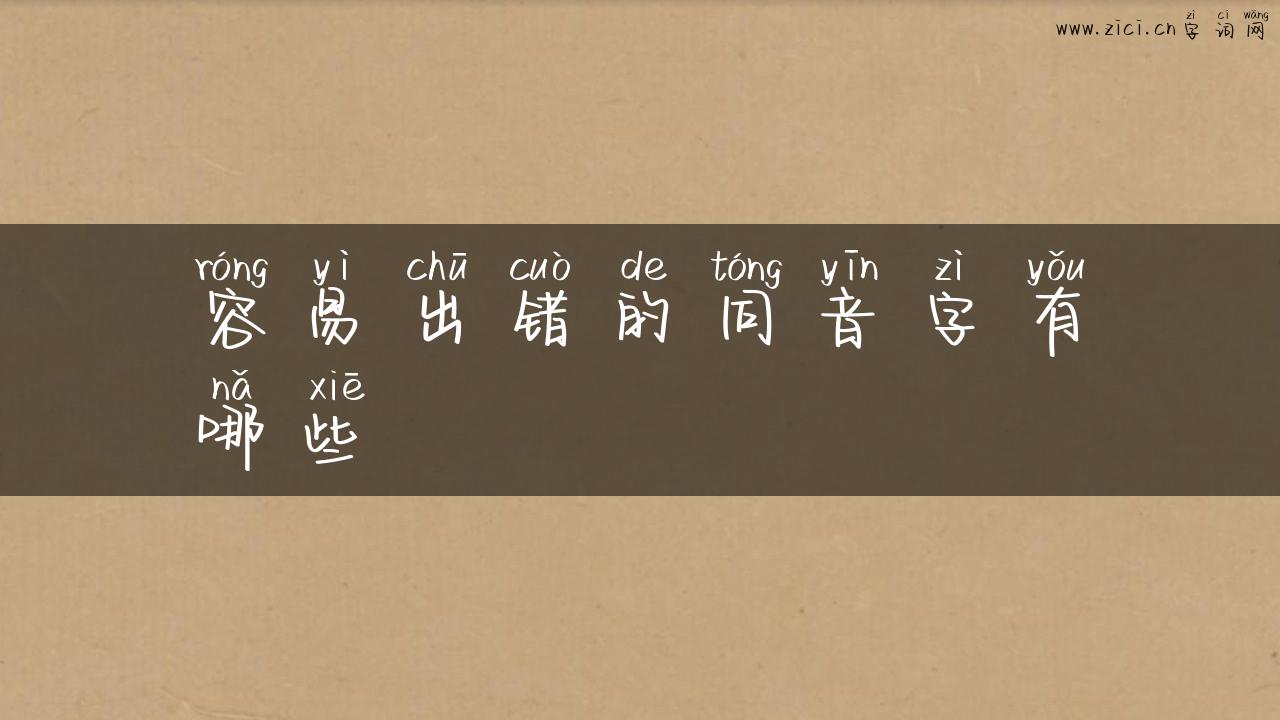 zì cí wǎng
www.zici.cn 字 词 网
róng yì chū cuò de tóng yīn zì yǒu
容 易 出 错 的 同 音 字 有
nǎ xiē
哪 些